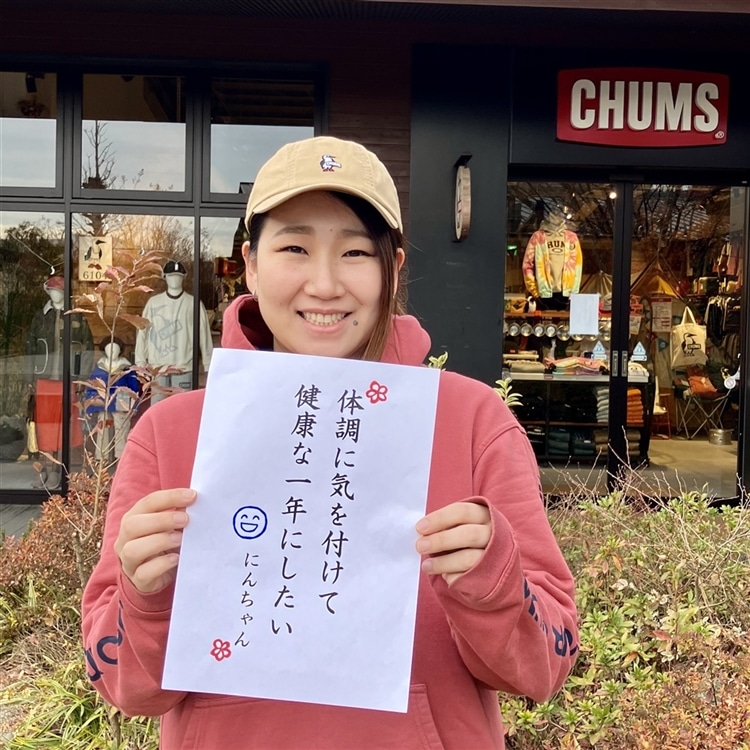 CHUMS
体調に気を付けて
健康な一年にしたい
にんちゃん
6104